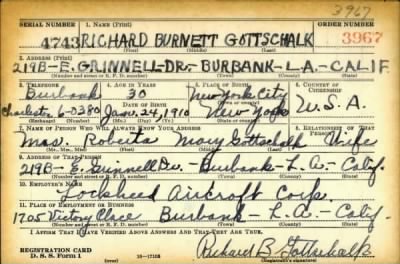 3967
SERIAL NUMBER 1. NAME (Print) ORDER NUMBER
4743 RICHARD BURNETT GOTTSCHALK 3967
(First) (Middle) (Last)
2. ADDRESS (Print)
219B-E. GRINNELL-DR.- BURBANK-L.A.-CALIF
(Number and street or R. F. D. number) (Town) (County) (State)
3. TELEPHONE 4. AGE IN YEARS 5. PLACE OF BIRTH 6. COUNTRY OF CITIZENSHIP
Burbank 30 New York City
Charlest. 6-3380 DATE OF BIRTH New York U.S.A.
Jan. 24, 1910
(Exchange) (Number) (Mo.) (Day) (Yr.) (State or country)
7. NAME OF PERSON WHO WILL ALWAYS KNOW YOUR ADDRESS 8. RELATIONSHIP OF THAT PERSON
Mrs. Roberta May Gottschalk Wife
(Mr., Mrs., Miss) (First) (Middle) (Last)
9. ADDRESS OF THAT PERSON
219B- E. Grinnell Dr.- Burbank- L.A.- Calif.
(Number and street or R. F. D. number) (Town) (County) (State)
10. EMPLOYER'S NAME
Lockheed Aircraft Corp.
11. PLACE OF EMPLOYMENT OR BUSINESS
1705 Victory Place Burbank- L.A.- Calif.
(Number and street or R. F. D. number) (Town) (County) (State)
I AFFIRM THAT I HAVE VERIFIED ABOVE ANSWERS AND THAT THEY ARE TRUE.
REGISTRATION CARD
D. S. S. Form 1 16-17105 Richard B. Gottschalk
(Registrant's signature)